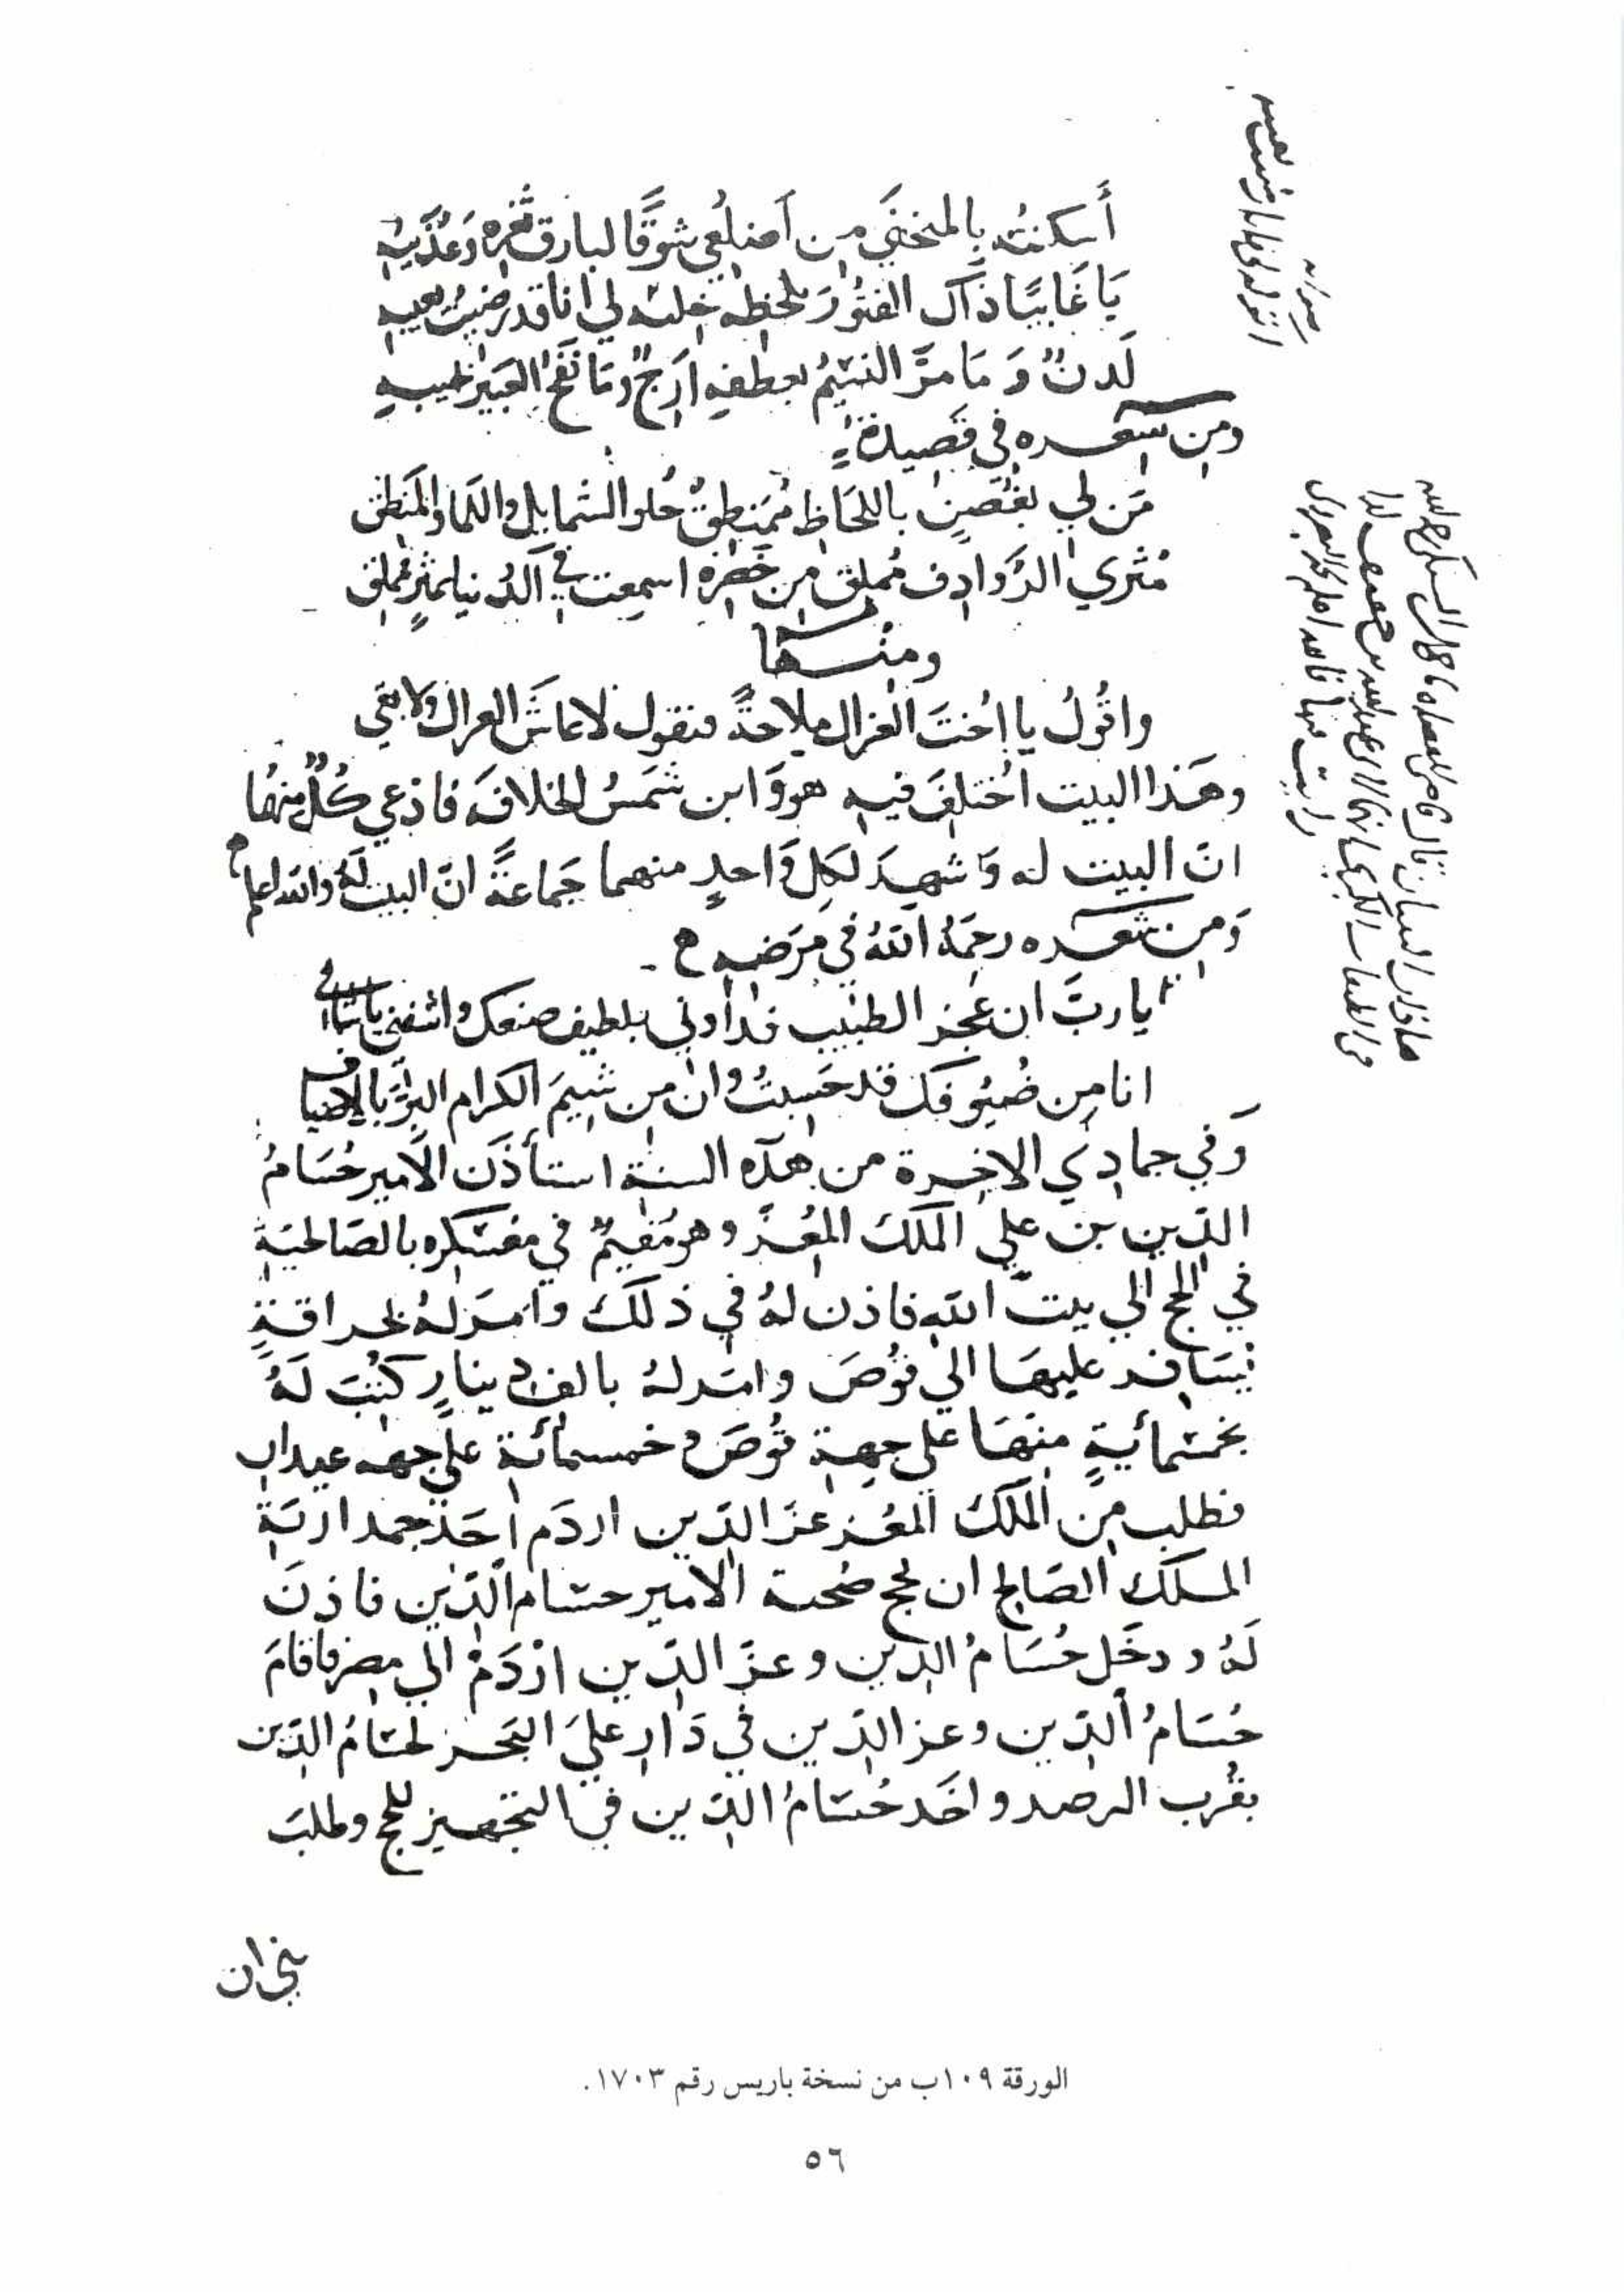 أسكنتُه بالمنحنَى من أضلُعِي شوقًا لبارق ثغره وَعُذَيبِهِ
يَا عَايبًا ذَاك الفتُورَ بلحظه خلته لي انا قد رضيتُ بعيبه
لَدنٌ وَمَا مرَّ النسيمُ بعطفهِ ارَجٌ وَمَا نفَحَ العَبِيرُ بجيبهِ
ومن شعره في قصيدة
مَن لي بغُصَنٍ باللحَاظِ مُمَنطِقٌ حُلو الشمايل واللمَا والمَنطِق
مُثري الرَّوَادِف مُملِقٍ من خَصْرِه اسمعت في الدُنيا بمُثرٍ مُملِق
ومنها
واقُولُ يا اختَ الغزال ملاحَةً فتقول لا عاشَ الغزال ولا بقي
وهَذا البيت اختلَفَ فيه هو وَابن شمَسُ الخلافَه فادعي كُلٌّ منهُما
انّ البيت له وَشهِدَ لكلِّ وَاحدٍ منهما جَماعَةً انّ البيت لَهُ والله اعلم
وَمِن شعره رحمَهُ اللهُ في مرَضه
يا ربَّ ان عجز الطبيب فداوني بلطيف صنعك واشفني يا شافي
انا مِن ضُيُوفك قد حَسِبتُ وان من شِيَم الكرام البِرَّ بالاضياف
وَفي جمادي الاخرة من هذه السنة استأذَن الاميرحُسَامُ
الدّين بن علي الملك المُعُزّ وهو مُقيمٌ في مُعسكره بالصَالحيَةِ
في الحج الي بيت الله فاذن لهُ في ذلكَ وامَرَ لهُ بحراقةٍ
يسَافر عليهَا الي قُوصَ وامَر لهُ بالف دينارٍ كتُبَ لَهُ
بخمسمائيةٍ منهَا علي جِهة قُوصَ وخمسمائة علي جهه عيداب
فطلب من الملك المُعُز عزّ الدّين ازدَم احَد جمدارتة
الملك الصَالح ان يحج صُحبة الامير حسام الدّين فاذنَ
لَهُ ودخَل حُسَامُ الدين وعزّ الدّين ازْدَمْ الي مصر فاقامَ
حُسَامُ الدّين وعز الدّين في دَارٍ علي البَحر لحسَامُ الدّين
بقُرب الرصد واخَد حُسَامُ الدّين في التجهيز للحج وطلبَ
الورقة ١٠٩ب من نسخة باريس رقم ١٧٠٣.
٥٦